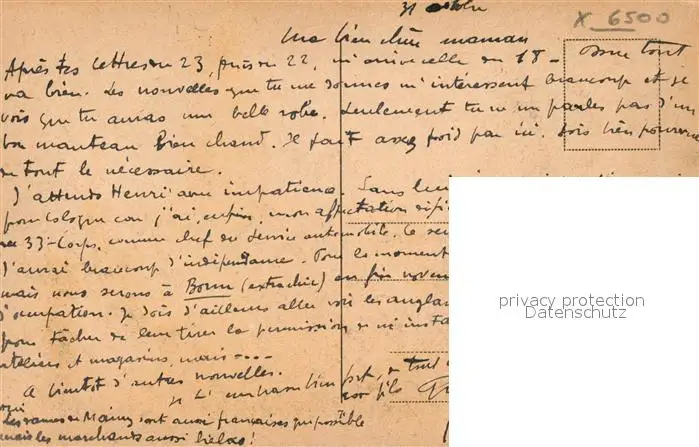 31 octobre
X 6500
Ma bien chère maman
Après tes lettres du 23, puis du 22, m'arrive celle du 18 - Donc tout
va bien. Les nouvelles que tu me donnes m'intéressent beaucoup et je
vois que tu auras une belle robe. Seulement tu ne me parles pas d'un
bon manteau bien chaud. Il fait assez froid par ici. Sois bien pourvue
de tout le nécessaire.
J'attends Henri avec impatience. Sans
pour Cologne car j'ai, enfin, mon affectation
au 33e Corps, comme chef du Service automobile. Ce
J'aurai beaucoup d'indépendance. Pour le moment
mais nous serons à Bonn (extra chic) en fin
d'occupation. Je dois d'ailleurs aller voir les
pour tâcher de leur tirer la permission de
ateliers et magasins, mais ----
A bientôt d'autres nouvelles.
Je t'embrasse bien fort, de tout
ton fils
les rames de Mainz sont aussi françaises que possible
mais les marchands aussi hélas!
privacy protection
Datenschutz